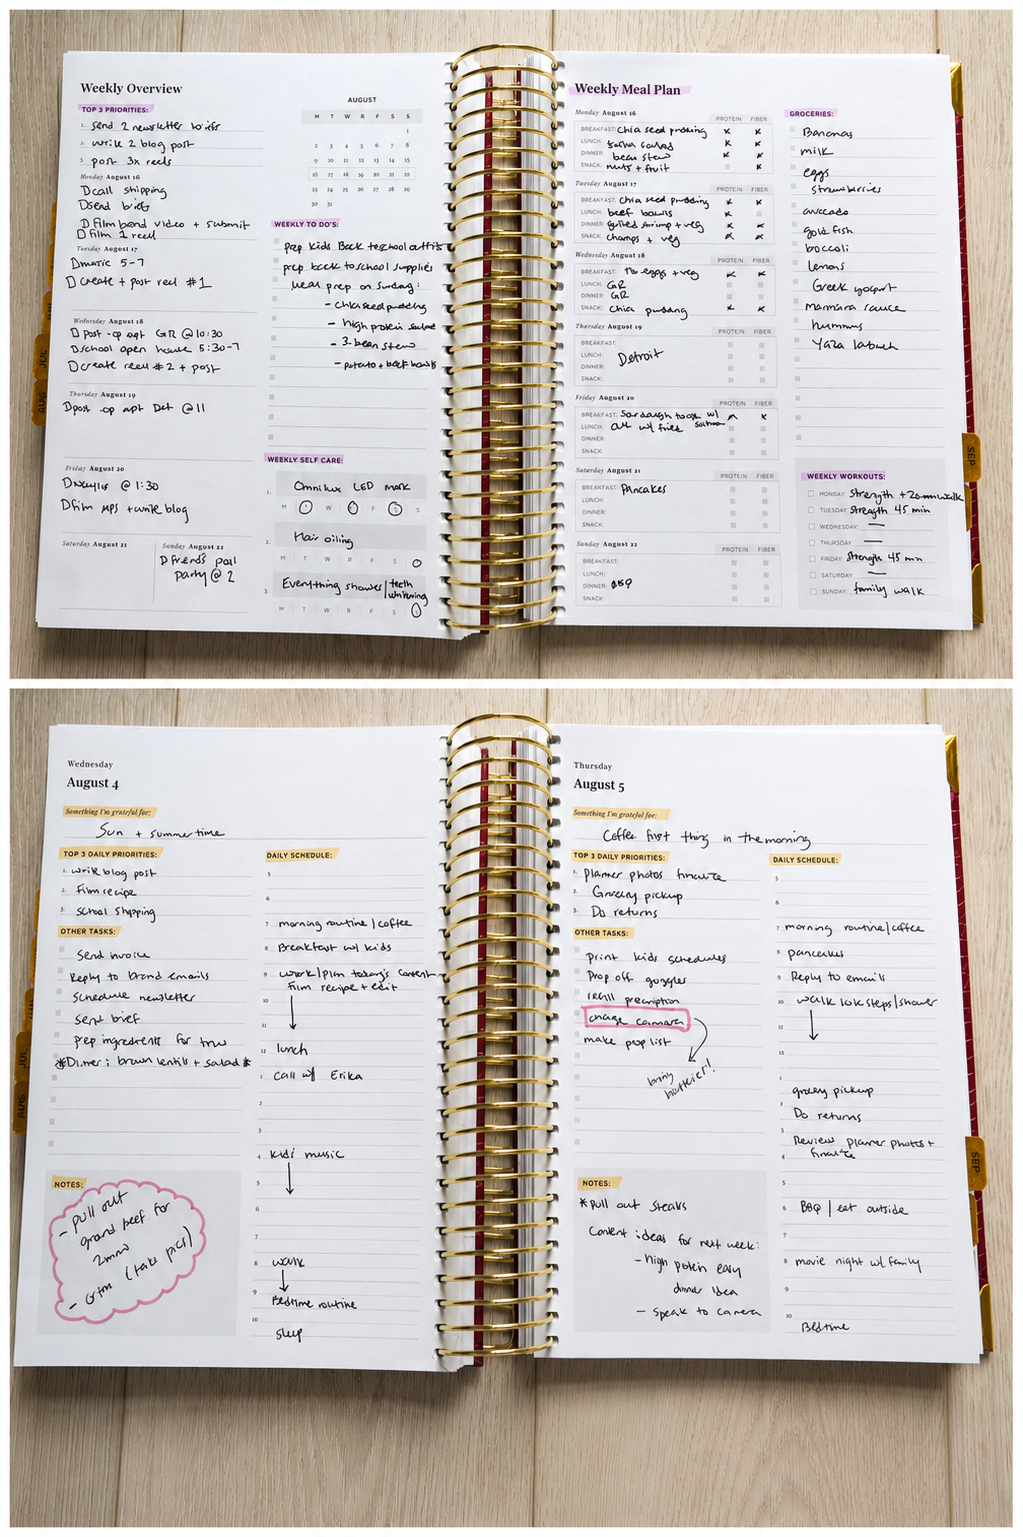 Weekly Overview
TOP 3 PRIORITIES:
1. send 2 newsletter briefs
2. write 2 blog post
3. post 3x reels
Monday August 16
call shipping
send brief
film brand video + submit
film 1 reel
Tuesday August 17
music 5-7
create + post reel #1
Wednesday August 18
post-op apt GR @10:30
school open house 5:30-7
create reel #2 + post
Thursday August 19
post-op apt Det @11
Friday August 20
@ 1:30
film + write blog
Saturday August 21
Sunday August 22
friend's pool
party @ 2
AUGUST
M T W T F S S
1
2 3 4 5 6 7 8
9 10 11 12 13 14 15
16 17 18 19 20 21 22
23 24 25 26 27 28 29
30 31
WEEKLY TO DO'S:
prep kids Back to school outfits
prep back to school supplies
Meal prep on Sunday:
- chia seed pudding
- high protein salad
- 3-bean stew
- potato + beef bowls
WEEKLY SELF CARE:
1. Omnilux LED mask
M T W T F S S
2. Hair oiling
M T W T F S S
3. Everything shower/teeth
whitening
M T W T F S S
Weekly Meal Plan
Monday August 16 PROTEIN FIBER
BREAKFAST: Chia seed pudding x x
LUNCH: salad x x
DINNER: bean stew x x
SNACK: nuts + fruit x
Tuesday August 17 PROTEIN FIBER
BREAKFAST: Chia seed pudding x x
LUNCH: beef bowls x
DINNER: grilled shrimp + veg x x
SNACK: chomps + veg x x
Wednesday August 18 PROTEIN FIBER
BREAKFAST: eggs + veg x x
LUNCH: GR
DINNER: GR
SNACK: Chia pudding x x
Thursday August 19 PROTEIN FIBER
BREAKFAST:
LUNCH: Detroit
DINNER:
SNACK:
Friday August 20 PROTEIN FIBER
BREAKFAST: Sourdough toast w/ x
LUNCH: w/ fried
DINNER:
SNACK:
Saturday August 21 PROTEIN FIBER
BREAKFAST: Pancakes
LUNCH:
DINNER:
SNACK:
Sunday August 22 PROTEIN FIBER
BREAKFAST:
LUNCH:
DINNER: BBQ
SNACK:
GROCERIES:
Bananas
milk
eggs
strawberries
avocado
goldfish
broccoli
lemons
Greek yogurt
marinara sauce
hummus
labneh
WEEKLY WORKOUTS:
MONDAY: Strength + 20 min walk
TUESDAY: Strength 45 min
WEDNESDAY: —
THURSDAY: —
FRIDAY: Strength 45 min
SATURDAY: —
SUNDAY: family walk
JUL
AUG
SEP
Wednesday
August 4
Something I'm grateful for:
Sun + summertime
TOP 3 DAILY PRIORITIES:
1. write blog post
2. Film recipe
3. school shopping
OTHER TASKS:
Send invoice
Reply to brand emails
Schedule newsletter
Send brief
prep ingredients for
*Dinner: brown lentils + salad*
NOTES:
- pull out
ground beef for
2mrw
- Gym (take pics)
DAILY SCHEDULE:
5
6
7 morning routine/coffee
8 Breakfast w/ kids
9 work/plan today's content
film recipe + edit
10
11
12 lunch
1 Call w/ Erika
2
3
4 kids' music
5
6
7
8 walk
9 Bedtime routine
10
sleep
Thursday
August 5
Something I'm grateful for:
Coffee first thing in the morning
TOP 3 DAILY PRIORITIES:
1. planner photos finalize
2. Grocery pickup
3. Do returns
OTHER TASKS:
print kids schedules
Drop off goggles
refill prescription
charge camera
make prep list
bring
batteries!
NOTES:
*Pull out steaks
Content ideas for next week:
- high protein easy
dinner idea
- speak to camera
DAILY SCHEDULE:
5
6
7 morning routine/coffee
8 pancakes
9 Reply to emails
10 walk 10k steps/shower
11
12
1 grocery pickup
2 Do returns
3 Review planner photos +
4 finalize
5
6 BBQ / eat outside
7
8 movie night w/ family
9
10 Bedtime
JUL
AUG
SEP